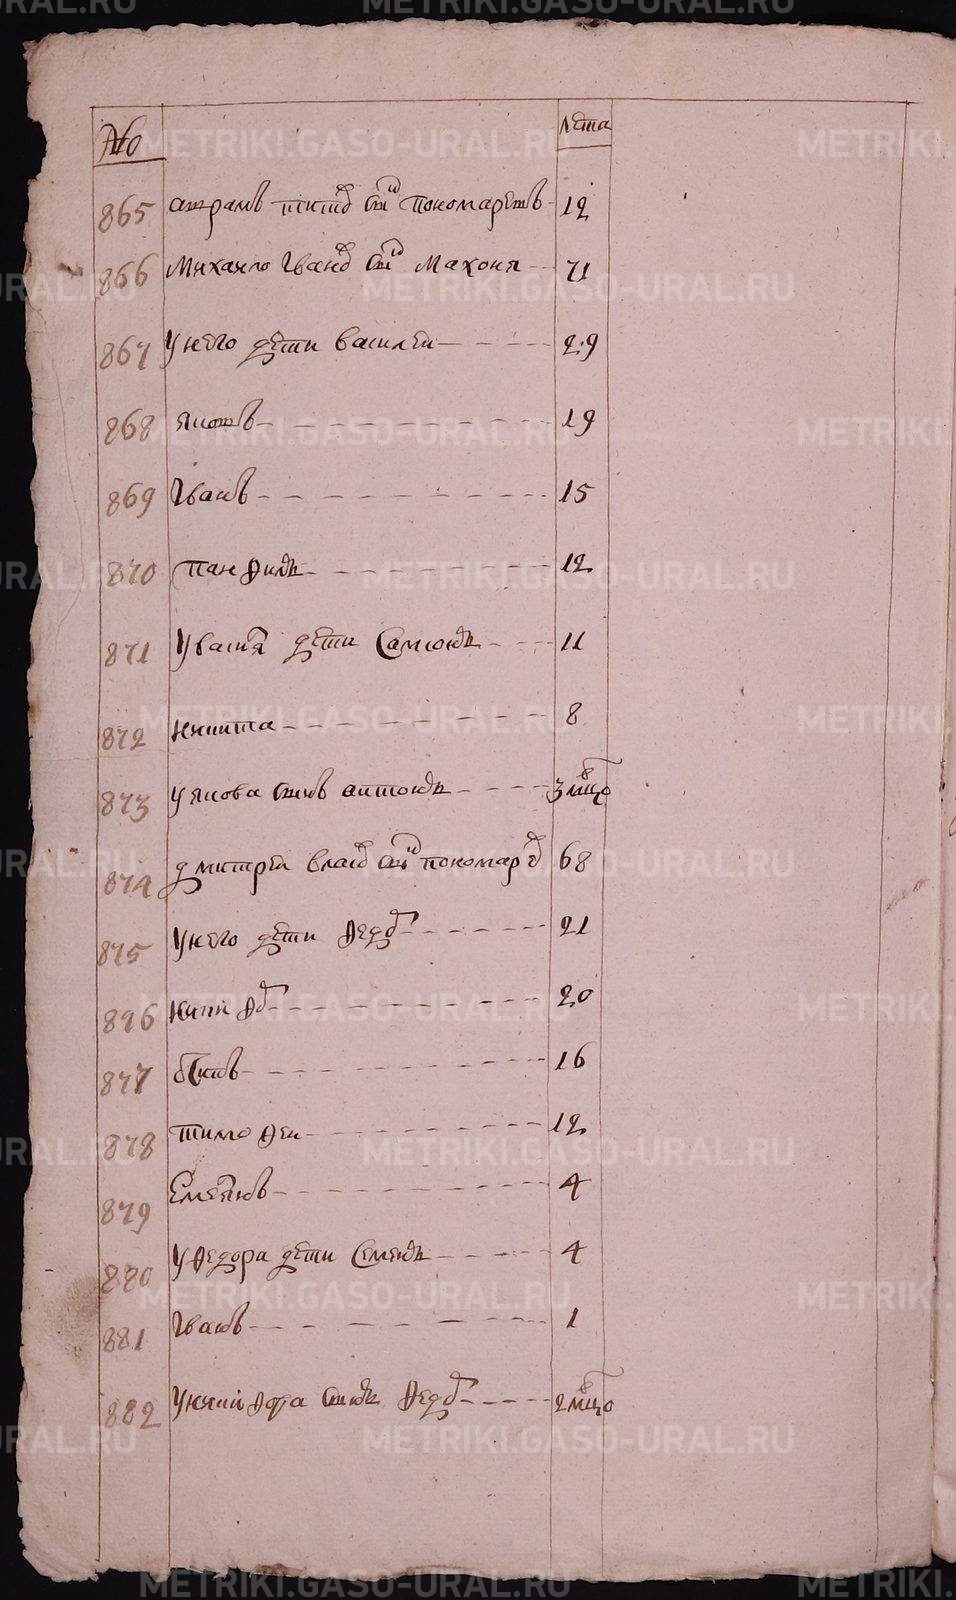 № лѣта
865 авраамъ титовъ сынъ пономаревъ 12
866 Михаило Ивановъ сынъ Махоня 71
867 у него дети василеи 29
868 яковъ 19
869 Иванъ 15
870 панфилъ 12
871 у василя дети Самсонъ 11
872 никита 8
873 у якова сынъ антонъ 3 мцовъ
874 дмитреи власовъ сынъ пономаревъ 68
875 у него дети Федоръ 21
876 никифоръ 20
877 осипъ 16
878 тимофеи 12
879 Емелянъ 4
880 у Федора дети Семенъ 4
881 Иванъ 1
882 у никифора сынъ Федоръ 2 мцовъ
METRIKI.GASO-URAL.RU